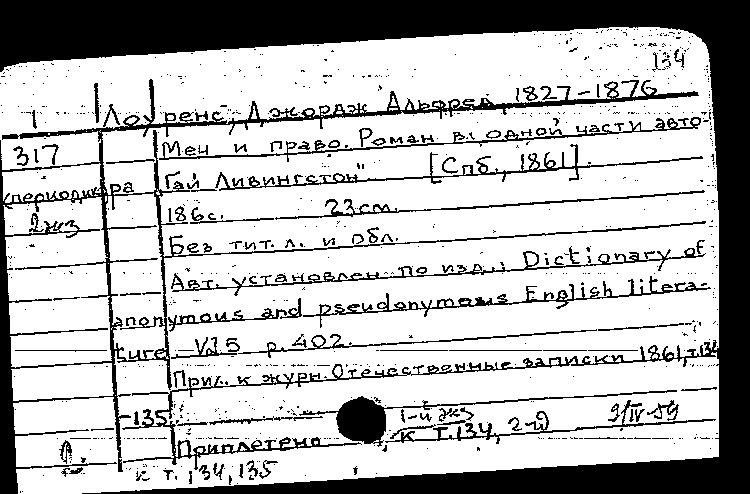 134
1 Лоуренс, Джордж Альфред, 1827-1876
317 Меч и право. Роман в одной части авто-
(периодика Гай Ливингстон". [Спб., 1861].
2 экз 186с. 23см.
Без тит. л. и обл.
Авт. установлен по изд.: Dictionary of
anonymous and pseudonymous English litera-
ture. Vol 5 p. 402.
Прил. к журн. Отечественные записки 1861, т.134
-135
1-й экз 9/IV-59
Приплетено к т.134, 2-й
к т. 134, 135